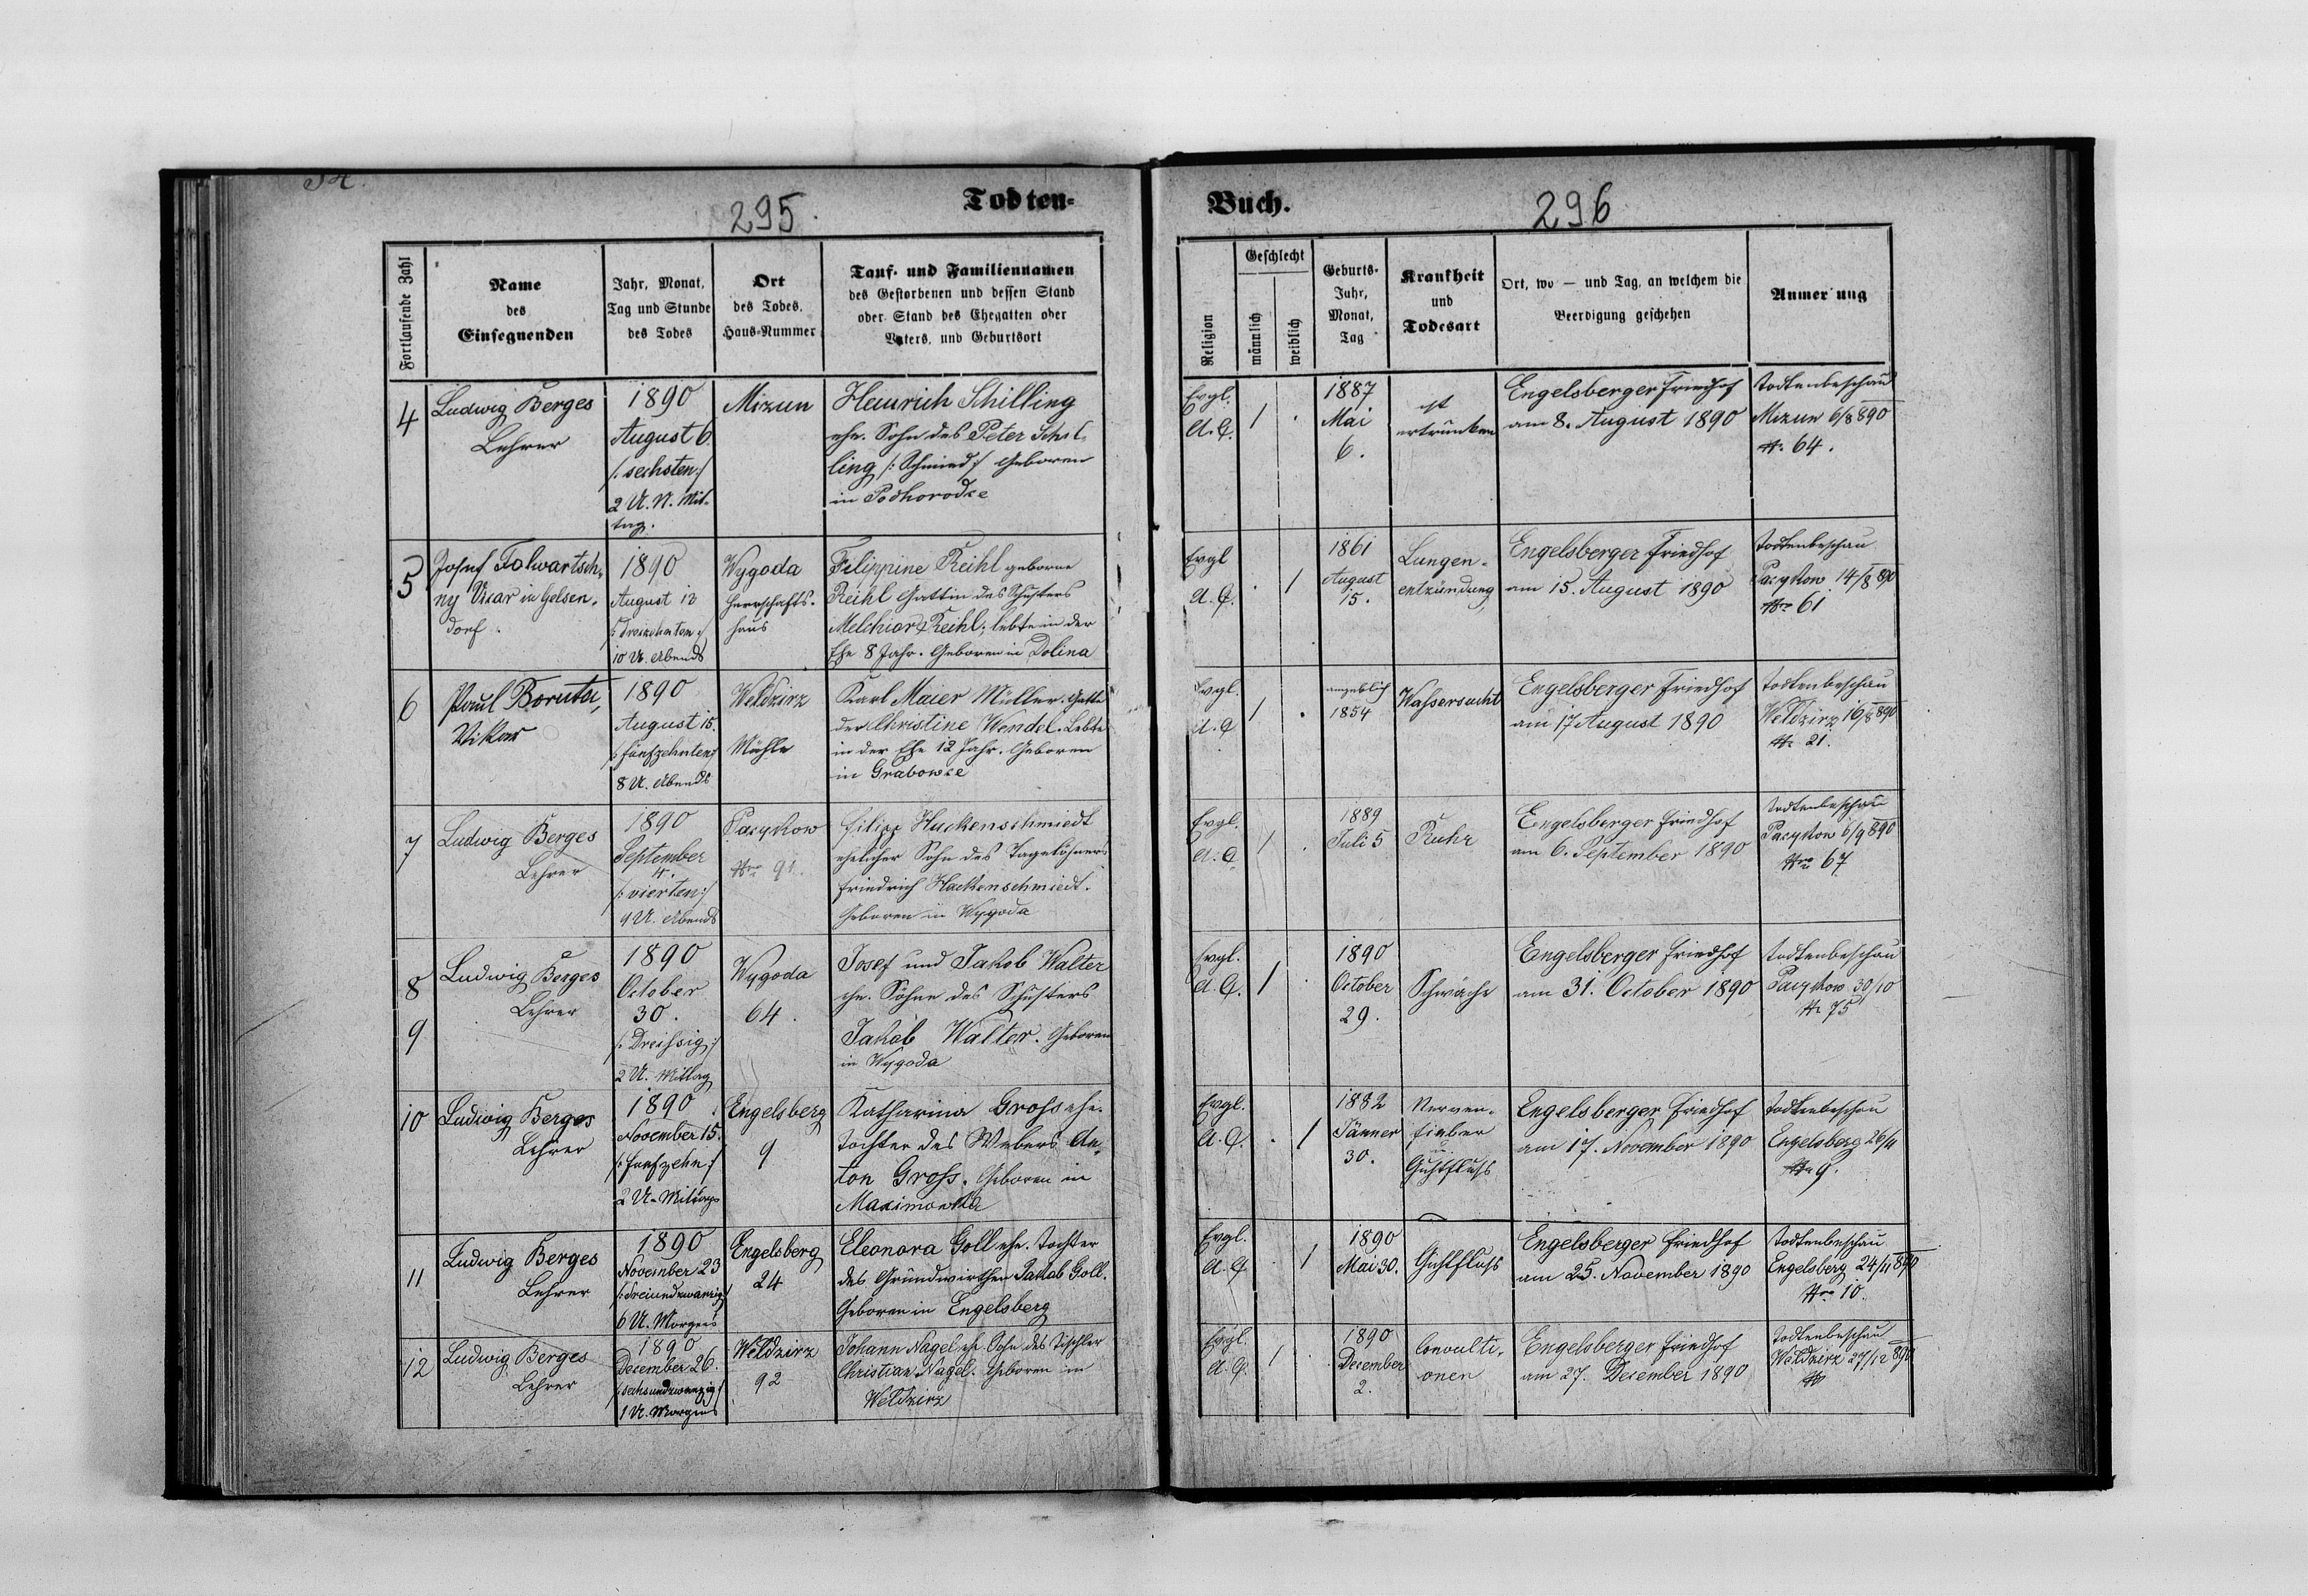 295.
Todten-
Fortlaufende Zahl
Name
des
Einsegnenden
Jahr, Monat,
Tag und Stunde
des Todes
Ort
des Todes,
Haus-Nummer
Tauf- und Familiennamen
des Gestorbenen und dessen Stand
oder Stand des Ehegatten oder
Vaters, und Geburtsort
4
Ludwig Berges
Lehrer
1890
August 6.
/: sechsten :/
2 U. N. Mit-
tag.
Mizun
Heinrich Schilling
ehe. Sohn des Peter Schil-
ling /: Schmied :/ Geboren
in Podhorodce
5
Josef Folwartsch-
ny Vicar in Gelsen-
dorf.
1890
August 13
/: dreizehnten :/
10 U. Abends
Wygoda
Herrschafts-
haus
Filippine Reihl geborne
Reihl Gattin des Schusters
Melchior Reihl; lebte in der
Ehe 8 Jahr. Geboren in Dolina
6
Paul Boruta,
Vikar
1890
August 15.
/: fünfzehnten :/
8 U. Abends
Weldzirz
Mühle
Karl Maier Müller. Gatte
der Christine Wendel. Lebte
in der Ehe 12 Jahr. Geboren
in Grabowce
7
Ludwig Berges
Lehrer
1890
September
4.
/: vierten :/
9 U. Abends
Pacykow
Nro 91.
Filipp Hackenschmiedt
ehelicher Sohn des Tagelöhners
Friedrich Hackenschmiedt.
Geboren in Wygoda
8
9
Ludwig Berges
Lehrer
1890
October
30.
/: Dreissig :/
2 U. Mittag
Wygoda
64.
Josef und Jakob Walter
ehe. Söhne des Schusters
Jakob Walter. Geboren
in Wygoda
10
Ludwig Berges
Lehrer
1890
November 15.
/: fünfzehn :/
2 U. Mittags
Engelsberg
9
Katharina Gross ehe.
Tochter des Webers An-
ton Gross. Geboren in
Maximowka
11
Ludwig Berges
Lehrer
1890
November 23
/: dreiundzwanzig :/
6 U. Morgens
Engelsberg
24
Eleonora Goll ehe. Tochter
des Grundwirthen Jakob Goll.
Geboren in Engelsberg
12
Ludwig Berges
Lehrer
1890
December 26.
/: sechsundzwanzig :/
1 U. Morgens
Weldzirz
92
Johann Nagel ehe. Sohn des Tischler
Christian Nagel. Geboren in
Weldzirz
Buch.
296
Religion
Geschlecht
männlich
weiblich
Geburts-
Jahr,
Monat,
Tag
Krankheit
und
Todesart
Ort, wo — und Tag, an welchem die
Beerdigung geschehen
Anmerkung
Evgl.
A. C.
1
.
1887
Mai
6.
ist
ertrunken
Engelsberger Friedhof
am 8. August 1890
Todtenbeschau
Mizun 6/8 890
Nr. 64.
Evgl
A. C.
.
1
1861
August
15.
Lungen-
entzündung
Engelsberger Friedhof
am 15. August 1890
Todtenbeschau
Pacykow 14/8 890
Nro 61
Evgl.
A. C
1
.
angeblich
1854
Wassersucht
Engelsberger Friedhof
am 17 August 1890
Todtenbeschau
Weldzirz 16/8 890
Nr. 21.
Evgl.
A. C
1
.
1889
Juli 5
Ruhr
Engelsberger Friedhof
am 6. September 1890
Todtenbeschau
Pacykow 6/9 890
Nro 67
Evgl.
A. C.
1
.
1890
October
29.
Schwäche
Engelsberger Friedhof
am 31. October 1890
Todtenbeschau
Pacykow 30/10
Nr. 75
Evgl.
A. C.
.
1
1882
Jänner
30.
Nerven-
fieber
u.
Guhtfluss
Engelsberger Friedhof
am 17. November 1890
Todtenbeschau
Engelsberg 26/11
Nro 9.
Evgl.
A. C
.
1
1890
Mai 30.
Guhtfluss
Engelsberger Friedhof
am 25. November 1890
Todtenbeschau
Engelsberg 24/11 890
Nro 10.
Evgl.
A. C.
1
.
1890
December
2.
Convulti-
onen
Engelsberger Friedhof
am 27. December 1890
Todtenbeschau
Weldzirz 27/12 890
Nr